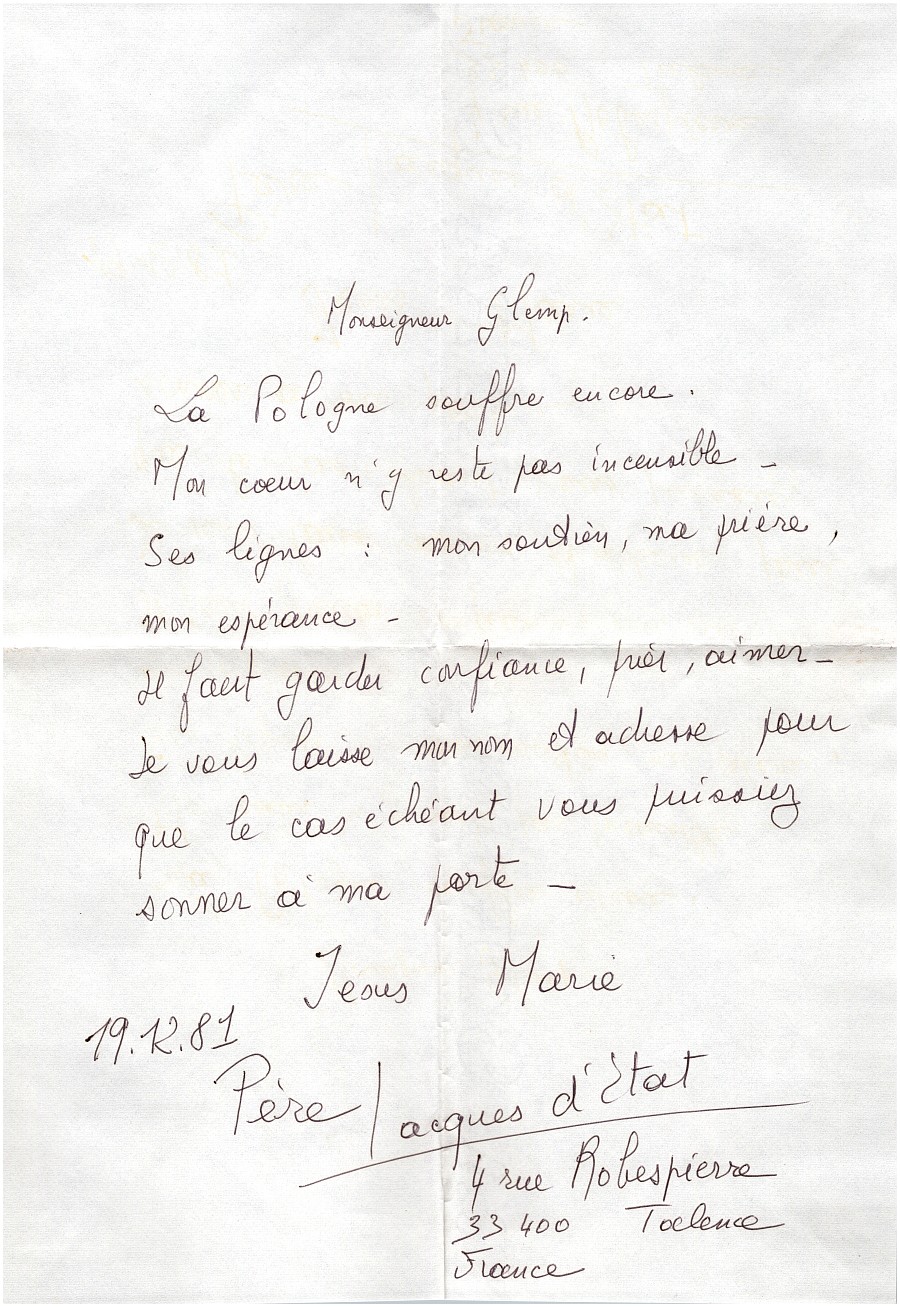 Monseigneur Glemp.
La Pologne souffre encore.
Mon coeur n'y reste pas incensible -
Ses lignes : mon soutien, ma prière,
mon espérance -
Il faut garder confiance, prier, aimer -
Je vous laisse mon nom et adresse pour
que le cas échéant vous puissiez
sonner à ma porte -
Jesus Marie
19.12.81
Père Jacques d'Etat
4 rue Robespierre
33 400 Talence
France